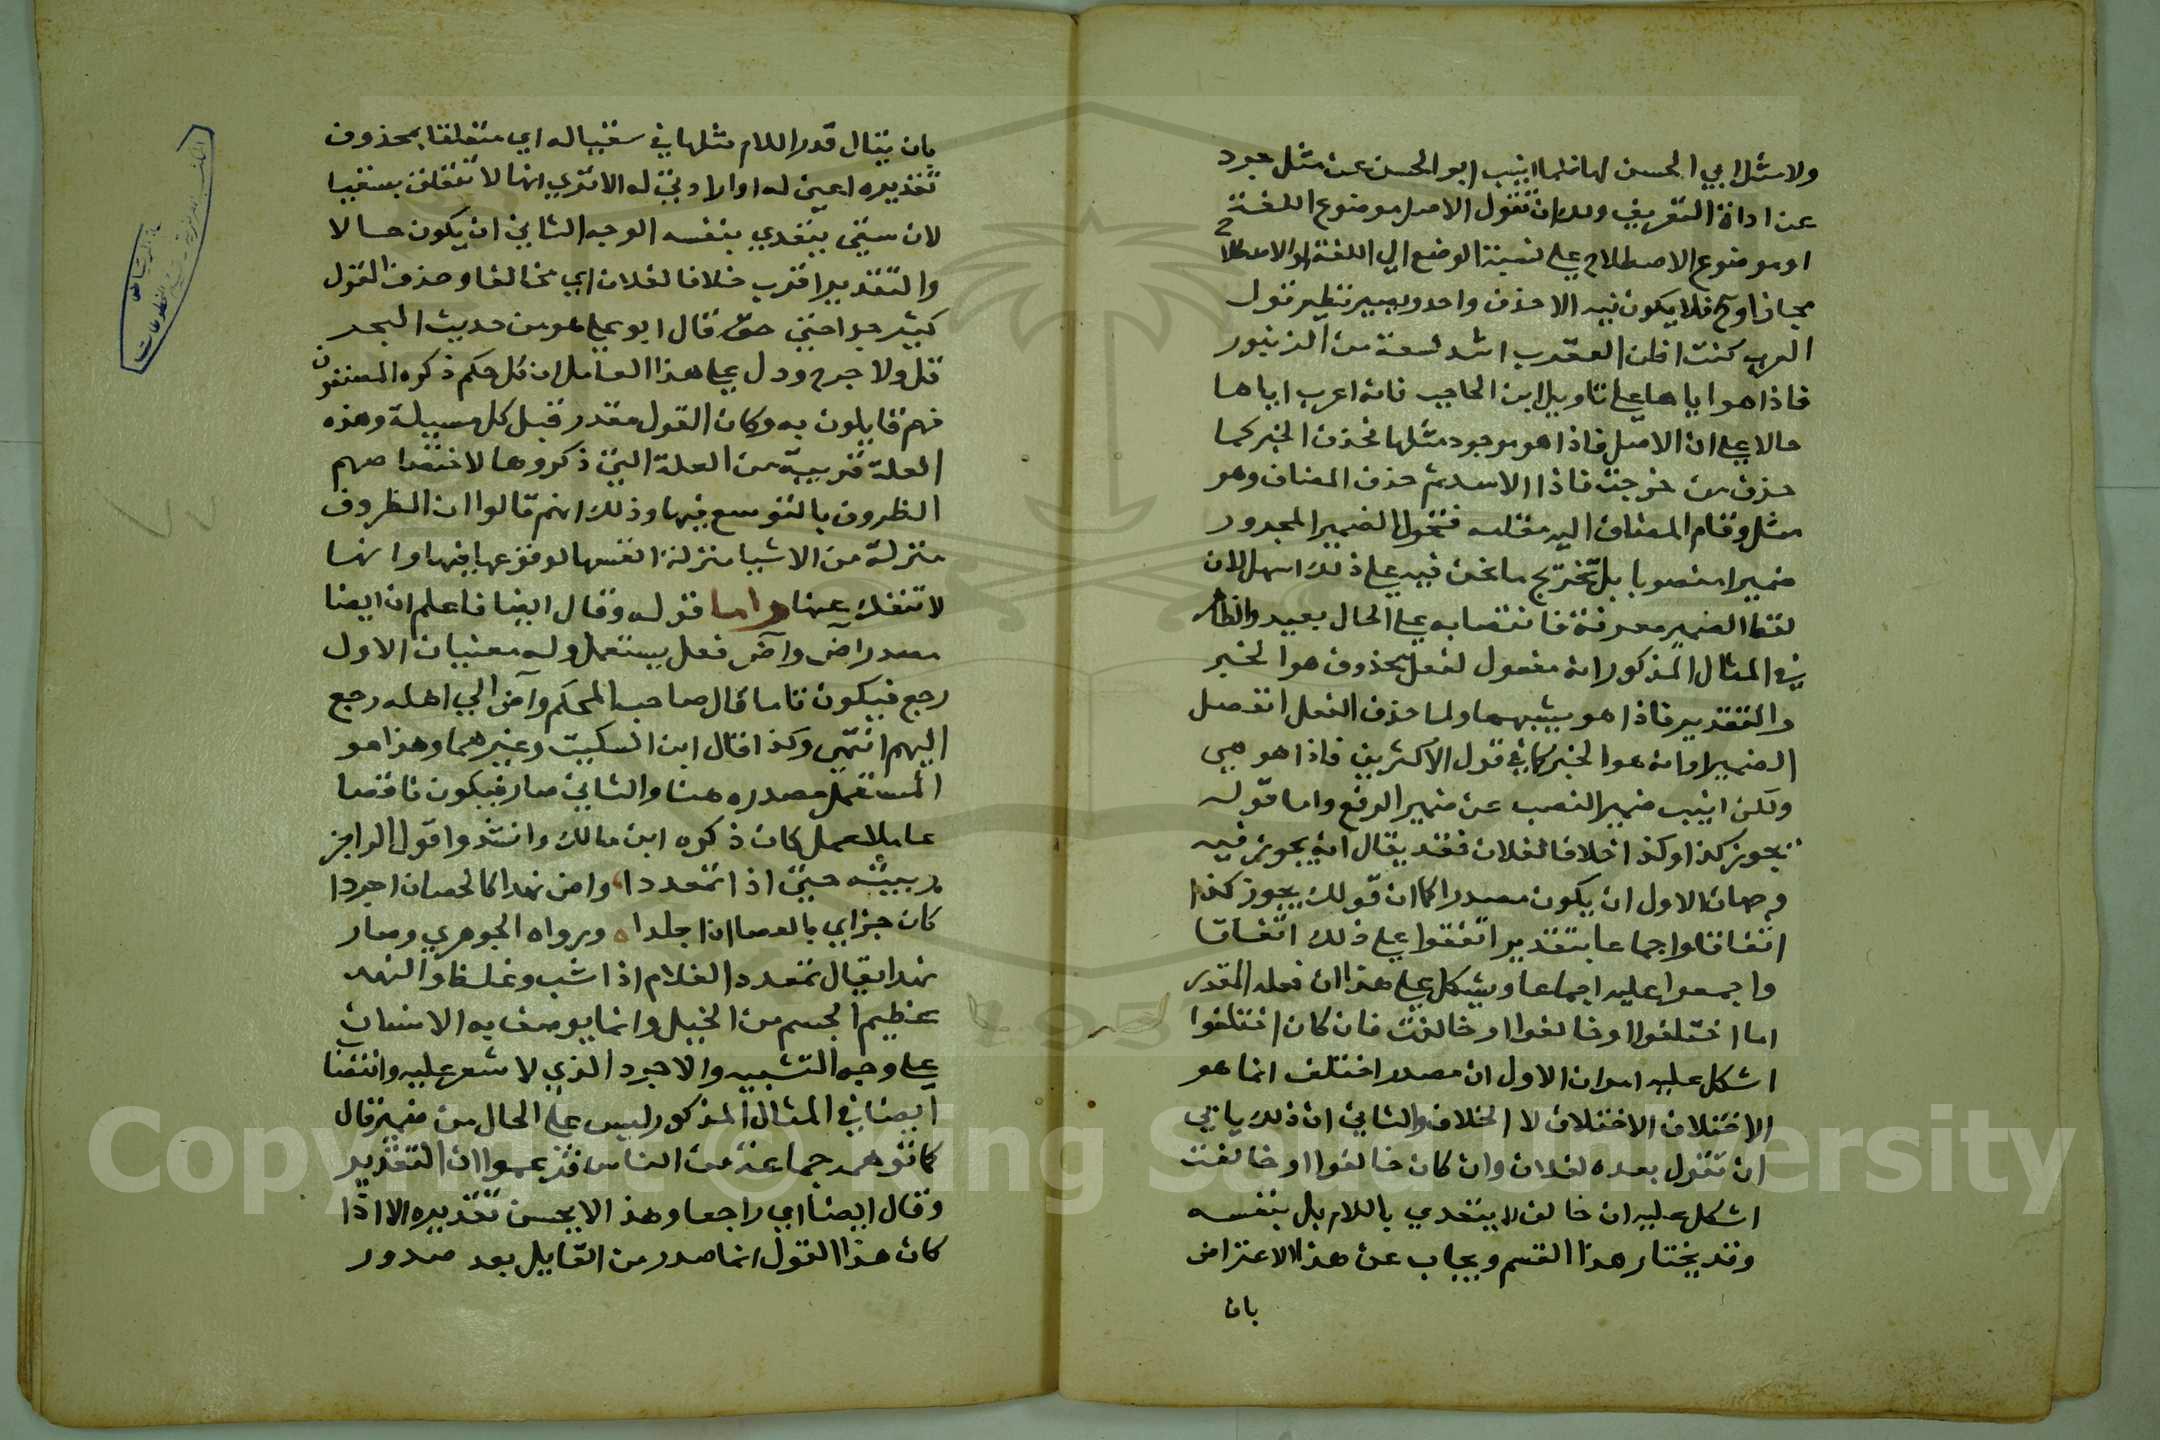 ولا مثل ابي الحسن لها فلما انيب ابو الحسن عن مثل جرد
عن اداة التعريف ولك ان تقول الاصل موضوع اللغة
او موضوع الاصطلاح علي نسبة الوضع الي اللغة او الاصطلاح
مجازا وح فلا يكون فيه الا حذف واحد ويصير نظير قول
العرب كنت اظن العقرب اشد لسعة من الزنبور
فاذا هو اياها علي تاويل ابن الحاجب فانه اعرب اياها
حالا علي ان الاصل فاذا هو موجود مثلها فحذف الخبر كما
حذف من خرجت فاذا الاسد ثم حذف المضاف وهو
مثل وقام المضاف اليه مقامه فتحول الضمير المجرور
ضميرا منصوبا بل تخريج ما نحن فيه علي ذلك اسهل لان
لفظ الضمير معرفة فانتصابه علي الحال بعيد والظاهر
في المثال المذكور انه مفعول لفعل محذوف هو الخبر
والتقدير فاذا هو يشبهها ولما حذف الفعل انفصل
الضمير او انه هو الخبر كما في قول الاكثرين فاذا هو هي
ولكن انيب ضمير النصب عن ضمير الرفع واما قوله
يجوز كذا وكذا خلافا لفلان فقد يقال انه يجوز فيه
وجهان الاول ان يكون مصدرا كما ان قولك يجوز كذا
اتفاقا واجماعا بتقدير اتفقوا علي ذلك اتفاقا
واجمعوا عليه اجماعا ويشكل علي هذا ان فعله المقدر
اما اختلفوا او خالفوا او خالفت فان كان اختلفوا
اشكل عليه امران الاول ان مصدر اختلف انما هو
الاختلاف الاختلاف لا الخلاف والثاني ان ذلك يابي
ان تقول بعده لفلان وان كان خالفوا او خالفت
اشكل عليه ان خالف لا يتعدي باللام بل بنفسه
وقد يختار هذا القسم ويجاب عن هذا الاعتراض
بان
بان يقال قدر اللام مثلها في سقيا له اي متعلقا بمحذوف
تقديره اعني له او ارادتي له الا تري انها لا تتعلق بسقيا
لان سقي يتعدي بنفسه الوجه الثاني ان يكون حالا
والتقدير اقول خلافا لفلان اي مخالفا وحذف القول
كثير جدا حتي قال ابو علي هو من حديث البحر
قل ولا حرج ودل علي هذا العامل ان كل حكم ذكره المصنفون
فهم قايلون به وكان القول مقدر قبل كل مسيلة وهذه
العلة قريبة من العلة التي ذكروها لاختصاصهم
الظروف بالتوسع فيها وذلك انهم قالوا ان الظروف
منزلة من الاشيا منزلة انفسها لوقوعها فيها وانها
لا تنفك عنها واما قوله وقال ايضا فاعلم ان ايضا
مصدر آض وآض فعل يستعمل وله معنيان الاول
رجع فيكون تاما قال صاحب المحكم وآض الي اهله رجع
اليهم انتهي وكذا قال ابن السكيت وغيرهما وهذا هو
المستعمل مصدره هنا والثاني صار فيكون ناقصا
عاملا عمل كان ذكره ابن مالك وانشدوا قول الراجز
ربيته حتي اذا تمعددا وآض نهدا كالحصان اجردا
كان جزاي بالعصا ان اجلدا ورواه الجوهري وصار
نهدا يقال تمعدد الغلام اذا شب وغلظ والنهد
عظيم الجسم من الخيل وانما يوصف به الانسان
علي وجه التشبيه والاجرد الذي لا شعر عليه وانتصا
ايضا في المثال المذكور ليس علي الحال من ضمير قال
كما توهمه جماعة من الناس فزعموا ان التقدير
وقال ايضا اي راجعا وهذا لا يحسن تقديره الا اذا
كان هذا القول انما صدر من القايل بعد صدور
Copyright © King Saud University
1957